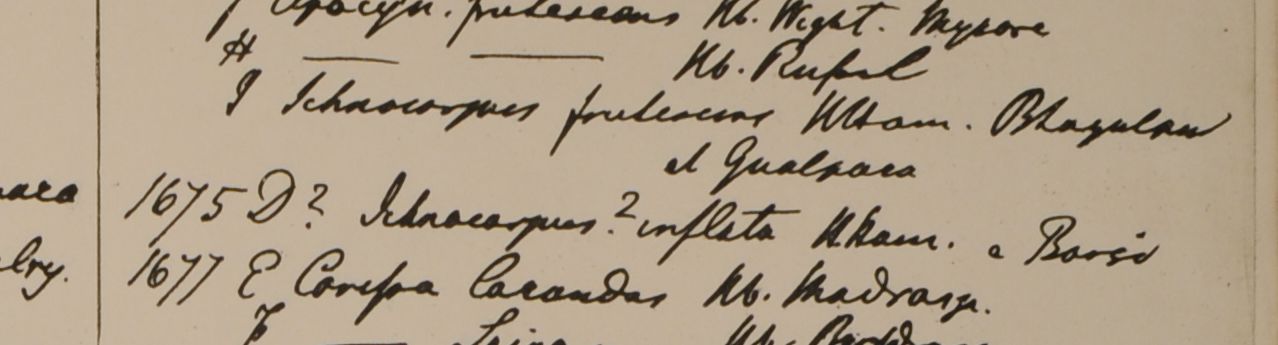 Apocyn. frutescens Hb. Wight. Mysore
H Hb. Russel
I Ichnocarpus frutescens HHam. Bhagulpur
et Gualpara
1675 D? Ichnocarpus? inflata HHam. e
1677 E Carissa Carandas Hb. Madrasp.
Hb.